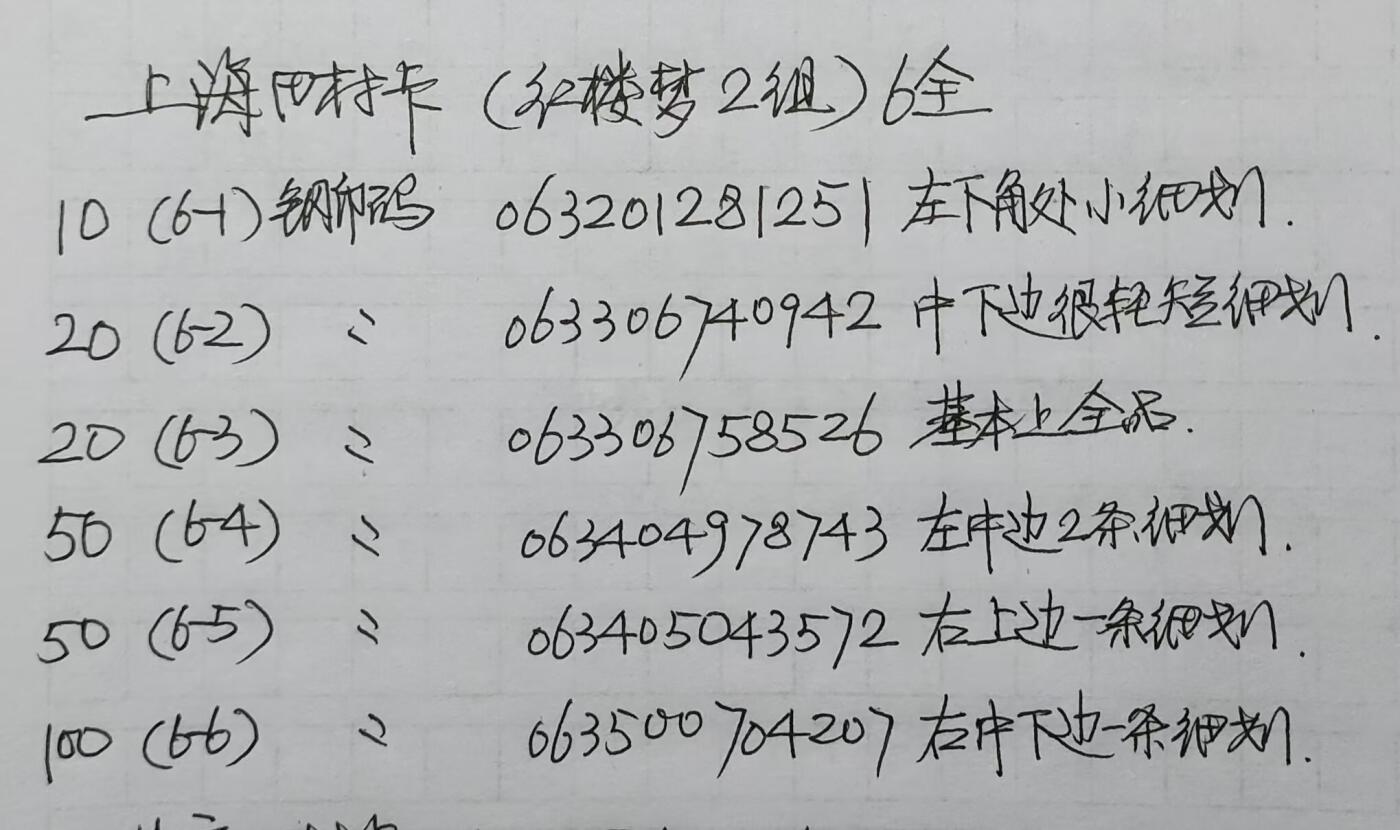 上海田村卡（红楼梦2组）6全
10 (6-1) 钢印码 063201281251 左下角处小细划.
20 (6-2) 〃 063306740942 中下边很轻短细划.
20 (6-3) 〃 063306758526 基本上全品.
50 (6-4) 〃 063404978743 左中边2条细划.
50 (6-5) 〃 063405043572 右上边一条细划.
100 (6-6) 〃 063500704207 右中下边一条细划.